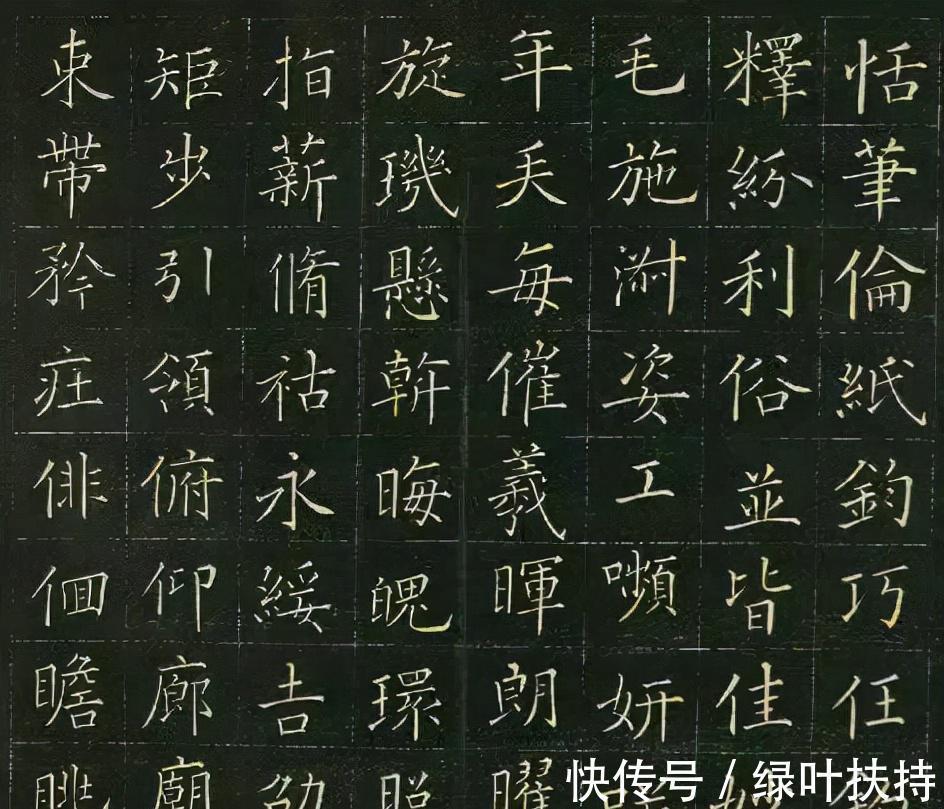 恬筆倫紙鈞巧任
釋紛利俗並皆佳
毛施淑姿工嚬妍
年矢每催羲暉朗曜
旋璣懸斡晦魄環照
指薪脩祜永綏吉劭
矩步引領俯仰廊廟
束帶矜莊俳佪瞻眺
快传号 / 绿叶扶持